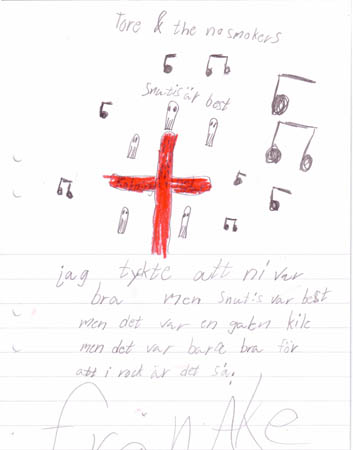 Tore & the nosmokers
Snutis är best
jag tyckte att ni var
bra men Snutis var best
men det var en galen kile
men det var bara bra för
att i rock är det så!
från Åke